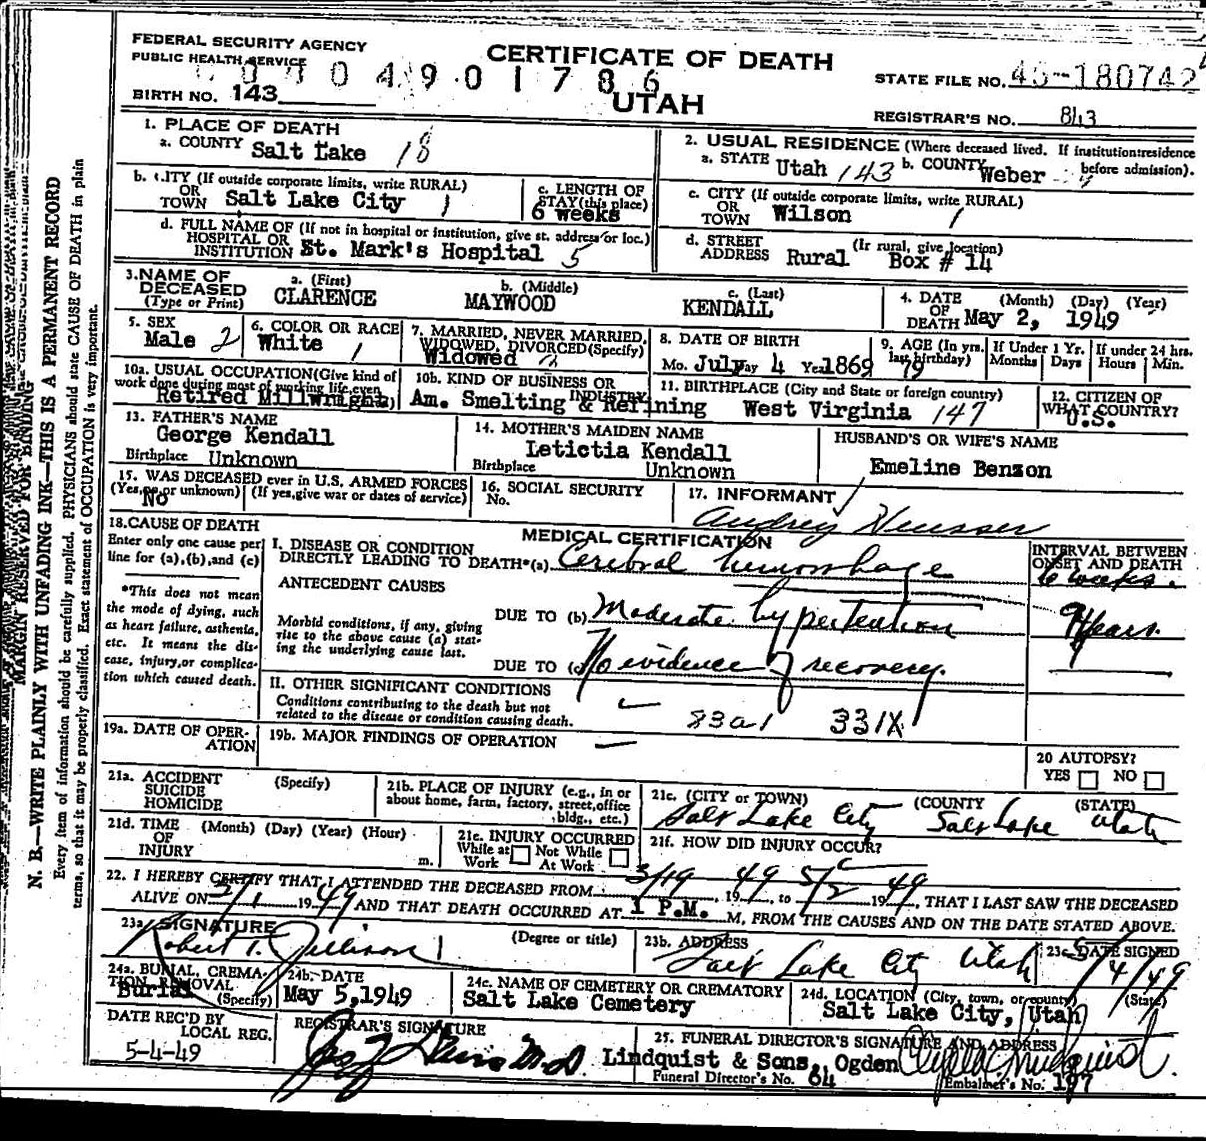 FEDERAL SECURITY AGENCY
PUBLIC HEALTH SERVICE
CERTIFICATE OF DEATH
UTAH
0 4 9 0 1 7 8 6
BIRTH NO. 143
STATE FILE NO. 45-180742
REGISTRAR'S NO. 843
1. PLACE OF DEATH
a. COUNTY Salt Lake 18
b. CITY (If outside corporate limits, write RURAL)
OR TOWN Salt Lake City 1
c. LENGTH OF STAY (this place) 6 weeks
d. FULL NAME OF (If not in hospital or institution, give st. address or loc.)
HOSPITAL OR INSTITUTION St. Mark's Hospital 5
2. USUAL RESIDENCE (Where deceased lived. If institution:residence before admission).
a. STATE Utah 143 b. COUNTY Weber
c. CITY (If outside corporate limits, write RURAL)
OR TOWN Wilson 1
d. STREET ADDRESS (If rural, give location) Rural Box # 14
3. NAME OF DECEASED (Type or Print)
a. (First) CLARENCE
b. (Middle) MAYWOOD
c. (Last) KENDALL
4. DATE OF DEATH (Month) (Day) (Year) May 2, 1949
5. SEX Male 2
6. COLOR OR RACE White 1
7. MARRIED, NEVER MARRIED, WIDOWED, DIVORCED (Specify) Widowed
8. DATE OF BIRTH
Mo. July Day 4 Year 1869
9. AGE (In yrs. last birthday) 79
If Under 1 Yr. Months Days
If under 24 hrs. Hours Min.
10a. USUAL OCCUPATION (Give kind of work done during most of working life, even if retired) Retired Millwright
10b. KIND OF BUSINESS OR INDUSTRY Am. Smelting & Refining
11. BIRTHPLACE (City and State or foreign country) West Virginia 147
12. CITIZEN OF WHAT COUNTRY? U.S.
13. FATHER'S NAME
George Kendall
Birthplace Unknown
14. MOTHER'S MAIDEN NAME
Letictia Kendall
Birthplace Unknown
HUSBAND'S OR WIFE'S NAME
Emeline Benson
15. WAS DECEASED ever in U.S. ARMED FORCES
(Yes, no or unknown) (If yes, give war or dates of service)
No
16. SOCIAL SECURITY No.
17. INFORMANT
Audrey Heusser
18. CAUSE OF DEATH
Enter only one cause per line for (a), (b), and (c)
*This does not mean the mode of dying, such as heart failure, asthenia, etc. It means the disease, injury, or complication which caused death.
MEDICAL CERTIFICATION
I. DISEASE OR CONDITION DIRECTLY LEADING TO DEATH*(a) Cerebral hemorrhage
ANTECEDENT CAUSES
Morbid conditions, if any, giving rise to the above cause (a) stating the underlying cause last.
DUE TO (b) Moderate hypertention
DUE TO (c) No evidence of recovery.
INTERVAL BETWEEN ONSET AND DEATH
6 weeks.
9 years.
II. OTHER SIGNIFICANT CONDITIONS
Conditions contributing to the death but not related to the disease or condition causing death.
83a1 331X
19a. DATE OF OPERATION
19b. MAJOR FINDINGS OF OPERATION
20 AUTOPSY?
YES NO
21a. ACCIDENT SUICIDE HOMICIDE (Specify)
21b. PLACE OF INJURY (e.g., in or about home, farm, factory, street, office bldg., etc.)
21c. (CITY or TOWN) (COUNTY (STATE)
Salt Lake City Salt Lake Utah
21d. TIME OF INJURY (Month) (Day) (Year) (Hour) m.
21e. INJURY OCCURRED
While at Work Not While At Work
21f. HOW DID INJURY OCCUR?
22. I HEREBY CERTIFY THAT I ATTENDED THE DECEASED FROM 3/19, 1949, to 5/2 1949, THAT I LAST SAW THE DECEASED
ALIVE ON 5/1 1949 AND THAT DEATH OCCURRED AT 1 P.M. M, FROM THE CAUSES AND ON THE DATE STATED ABOVE.
23a SIGNATURE (Degree or title)
Robert T. Jellison
23b. ADDRESS
Salt Lake City Utah
23c. DATE SIGNED
5/4/49
24a. BURIAL, CREMATION, REMOVAL (Specify) Burial
24b. DATE
May 5, 1949
24c. NAME OF CEMETERY OR CREMATORY
Salt Lake Cemetery
24d. LOCATION (City, town, or county) (State)
Salt Lake City, Utah
DATE REC'D BY LOCAL REG.
5-4-49
REGISTRAR'S SIGNATURE
M.D
25. FUNERAL DIRECTOR'S SIGNATURE AND ADDRESS
Lindquist & Sons, Ogden
Funeral Director's No. 64
Embalmer's No. 197
MARGIN RESERVED FOR BINDING
N. B.—WRITE PLAINLY WITH UNFADING INK—THIS IS A PERMANENT RECORD
Every item of information should be carefully supplied. PHYSICIANS should state CAUSE OF DEATH in plain
terms, so that it may be properly classified. Exact statement of OCCUPATION is very important.